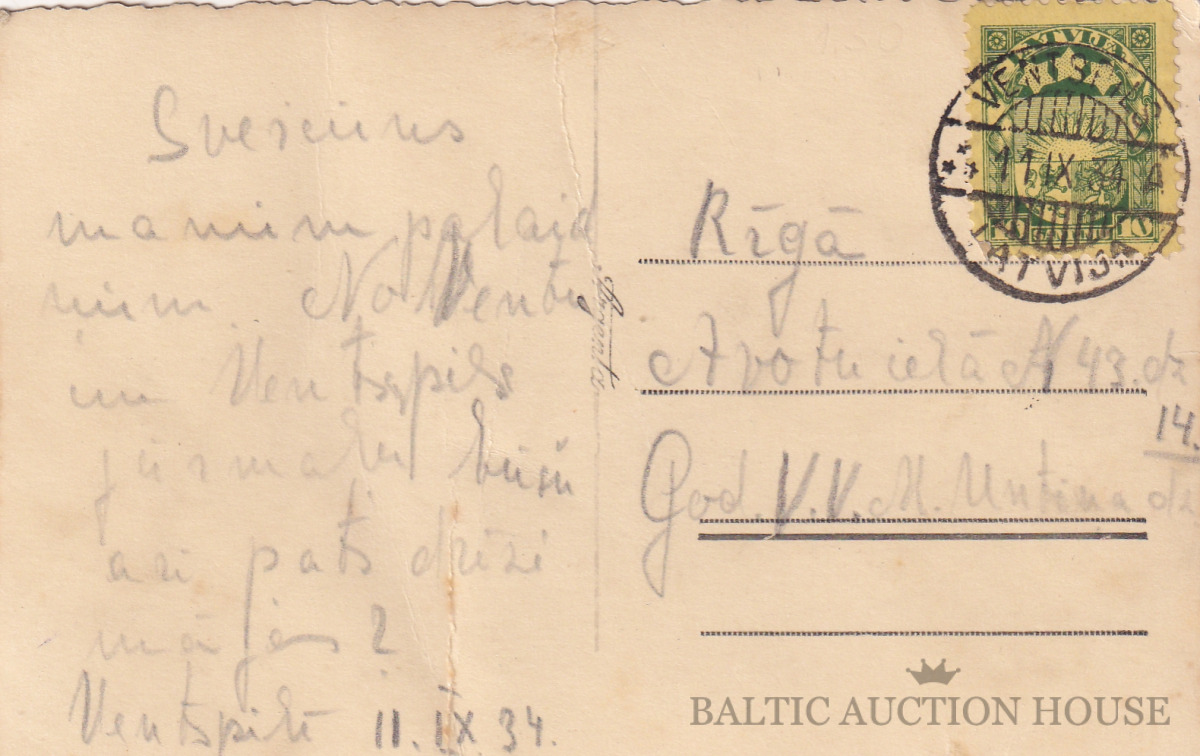 Sveiciens
mamim palaid
num No Ventu
un Ventspils
jūrmalu būšu
ari pats drīzi
mājās?
Ventspilī 11.IX 34.
LATVIJA
VENTSPILS
11 IX 34 4
LATVIJA
10
Rīgā
Avotu ielā N 43. dz
14.
God. V.V. M. Untiņa dz
BALTIC AUCTION HOUSE